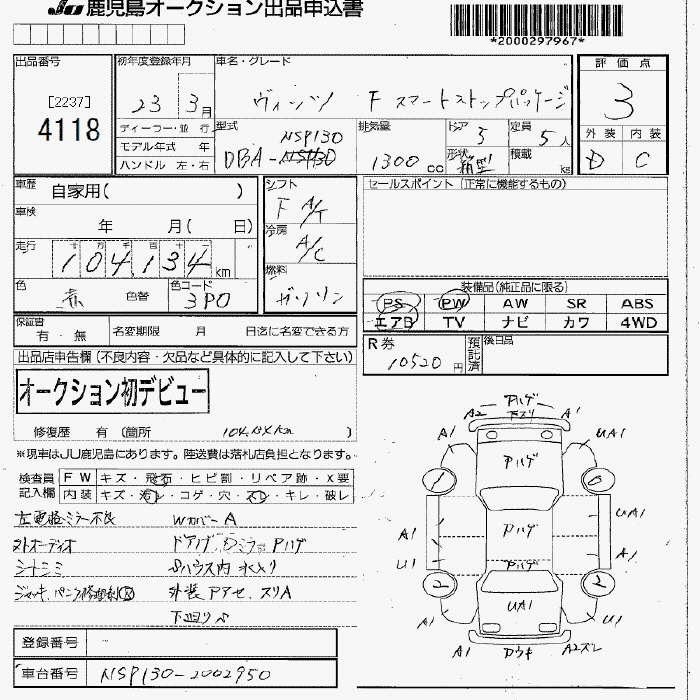 JU 鹿児島オークション出品申込書
*2000297967*
出品番号
[2237]
4118
初年度登録年月
23 3月
ディーラー・並行
モデル年式 年
ハンドル 左・右
車名・グレード
ヴィッツ F スマートストップパッケージ
型式
NSP130
DBA-
排気量
1300 cc
ドア
5
形状
箱型
定員
5人
積載
kg
評価点
3
外装 内装
D C
車歴
自家用( )
車検
年 月( 日)
走行
十万千百十一
104,134 km
色
赤 色替
色コード
3P0
シフト
F A/T
冷房
A/C
燃料
ガソリン
セールスポイント(正常に機能するもの)
装備品(純正品に限る)
PS PW AW SR ABS
エアB TV ナビ カワ 4WD
保証書
有・無
名変期限 月 日迄に名変できる方
R券
10520円
預託済
後日品
出品店申告欄(不良内容・欠品など具体的に記入して下さい)
オークション初デビュー
修復歴 有(箇所 )
※現車はJU鹿児島にあります。陸送費は落札店負担となります。
検査員
記入欄
FW キズ・飛石・ヒビ割・リペア跡・X要
内装 キズ・汚レ・コゲ・穴・スレ・キレ・破レ
左電格ミラー不良 WカバーA
外オーディオ ドアノブ、Dミラー Pハゲ
シートシミ
外装
下回り
登録番号
車台番号 NSP130-2002950
Pハゲ
A2 下ズリ A1
A1 UA1
Pハゲ
A1 Pハゲ UA1
U1 Pハゲ A1
UA1
A1 A1
A1 Dウキ A2ズレ